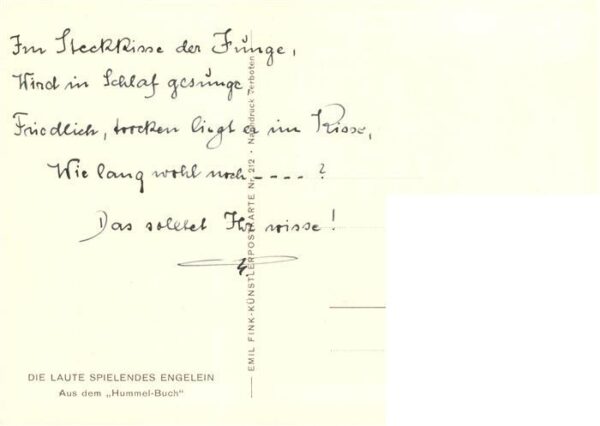 Im Steckkisse der Junge,
Wird in Schlaf gesunge
Friedlich, trocken liegt er im Kisse,
Wie lang wohl noch ---- ?
Das solltet Ihr wisse!
EMIL FINK-KÜNSTLERPOSTKARTE Nr. 212 · Nachdruck verboten
DIE LAUTE SPIELENDES ENGELEIN
Aus dem „Hummel-Buch"